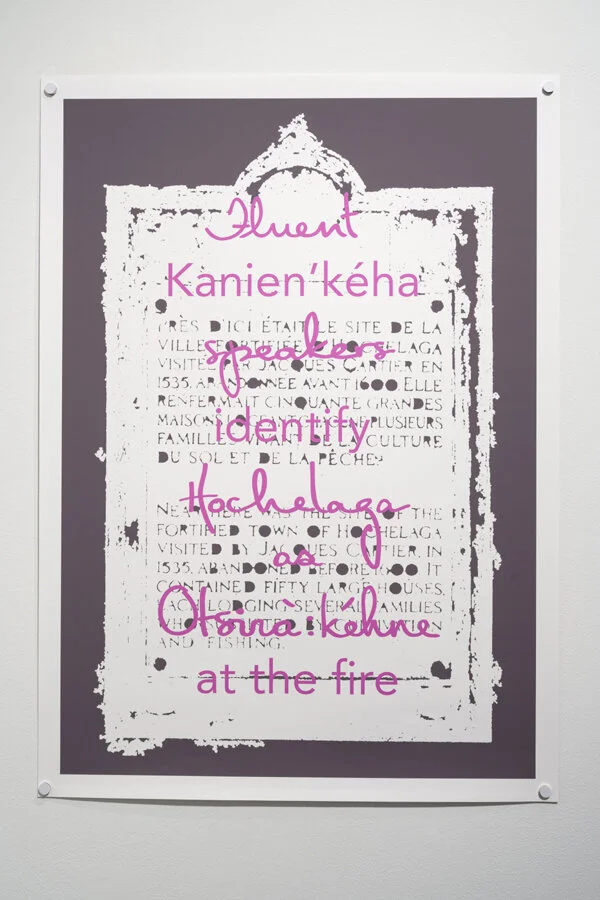 Fluent
Kanien'kéha
speakers
identify
Hochelaga
as
Otsirà:kéhne
at the fire
PRÈS D'ICI ÉTAIT LE SITE DE LA
VILLE FORTIFIÉE D'HOCHELAGA
VISITÉE PAR JACQUES CARTIER EN
1535. ABANDONNÉE AVANT 1600 ELLE
RENFERMAIT CINQUANTE GRANDES
MAISONS LOGEANT CHACUNE PLUSIEURS
FAMILLES VIVANT DE LA CULTURE
DU SOL ET DE LA PÊCHE.
NEAR HERE WAS THE SITE OF THE
FORTIFIED TOWN OF HOCHELAGA
VISITED BY JACQUES CARTIER, IN
1535, ABANDONED BEFORE 1600 IT
CONTAINED FIFTY LARGE HOUSES,
EACH LODGING SEVERAL FAMILIES
WHO BY CULTIVATION
AND FISHING.